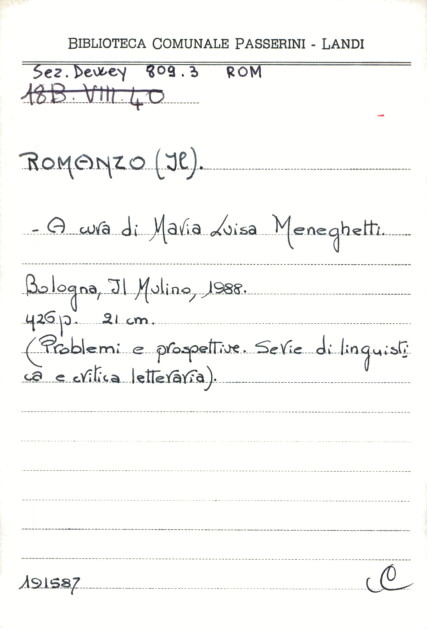 BIBLIOTECA COMUNALE PASSERINI - LANDI
Sez. Dewey 809.3 ROM
18B.VIII.40
ROMANZO (Il).
- A cura di Maria Luisa Meneghetti.
Bologna, Il Mulino, 1988.
426 p. 21 cm.
(Problemi e prospettive. Serie di linguisti
ca e critica letteraria).
191587